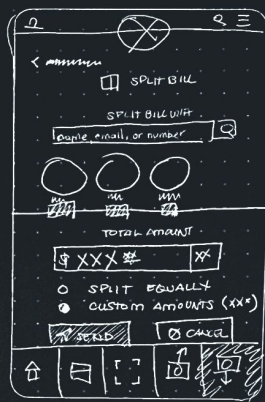 SPLIT BILL
SPLIT BILL WITH
name, email, or number
TOTAL AMOUNT
$ XXX XX
SPLIT EQUALLY
CUSTOM AMOUNTS (XX*)
SEND CANCEL